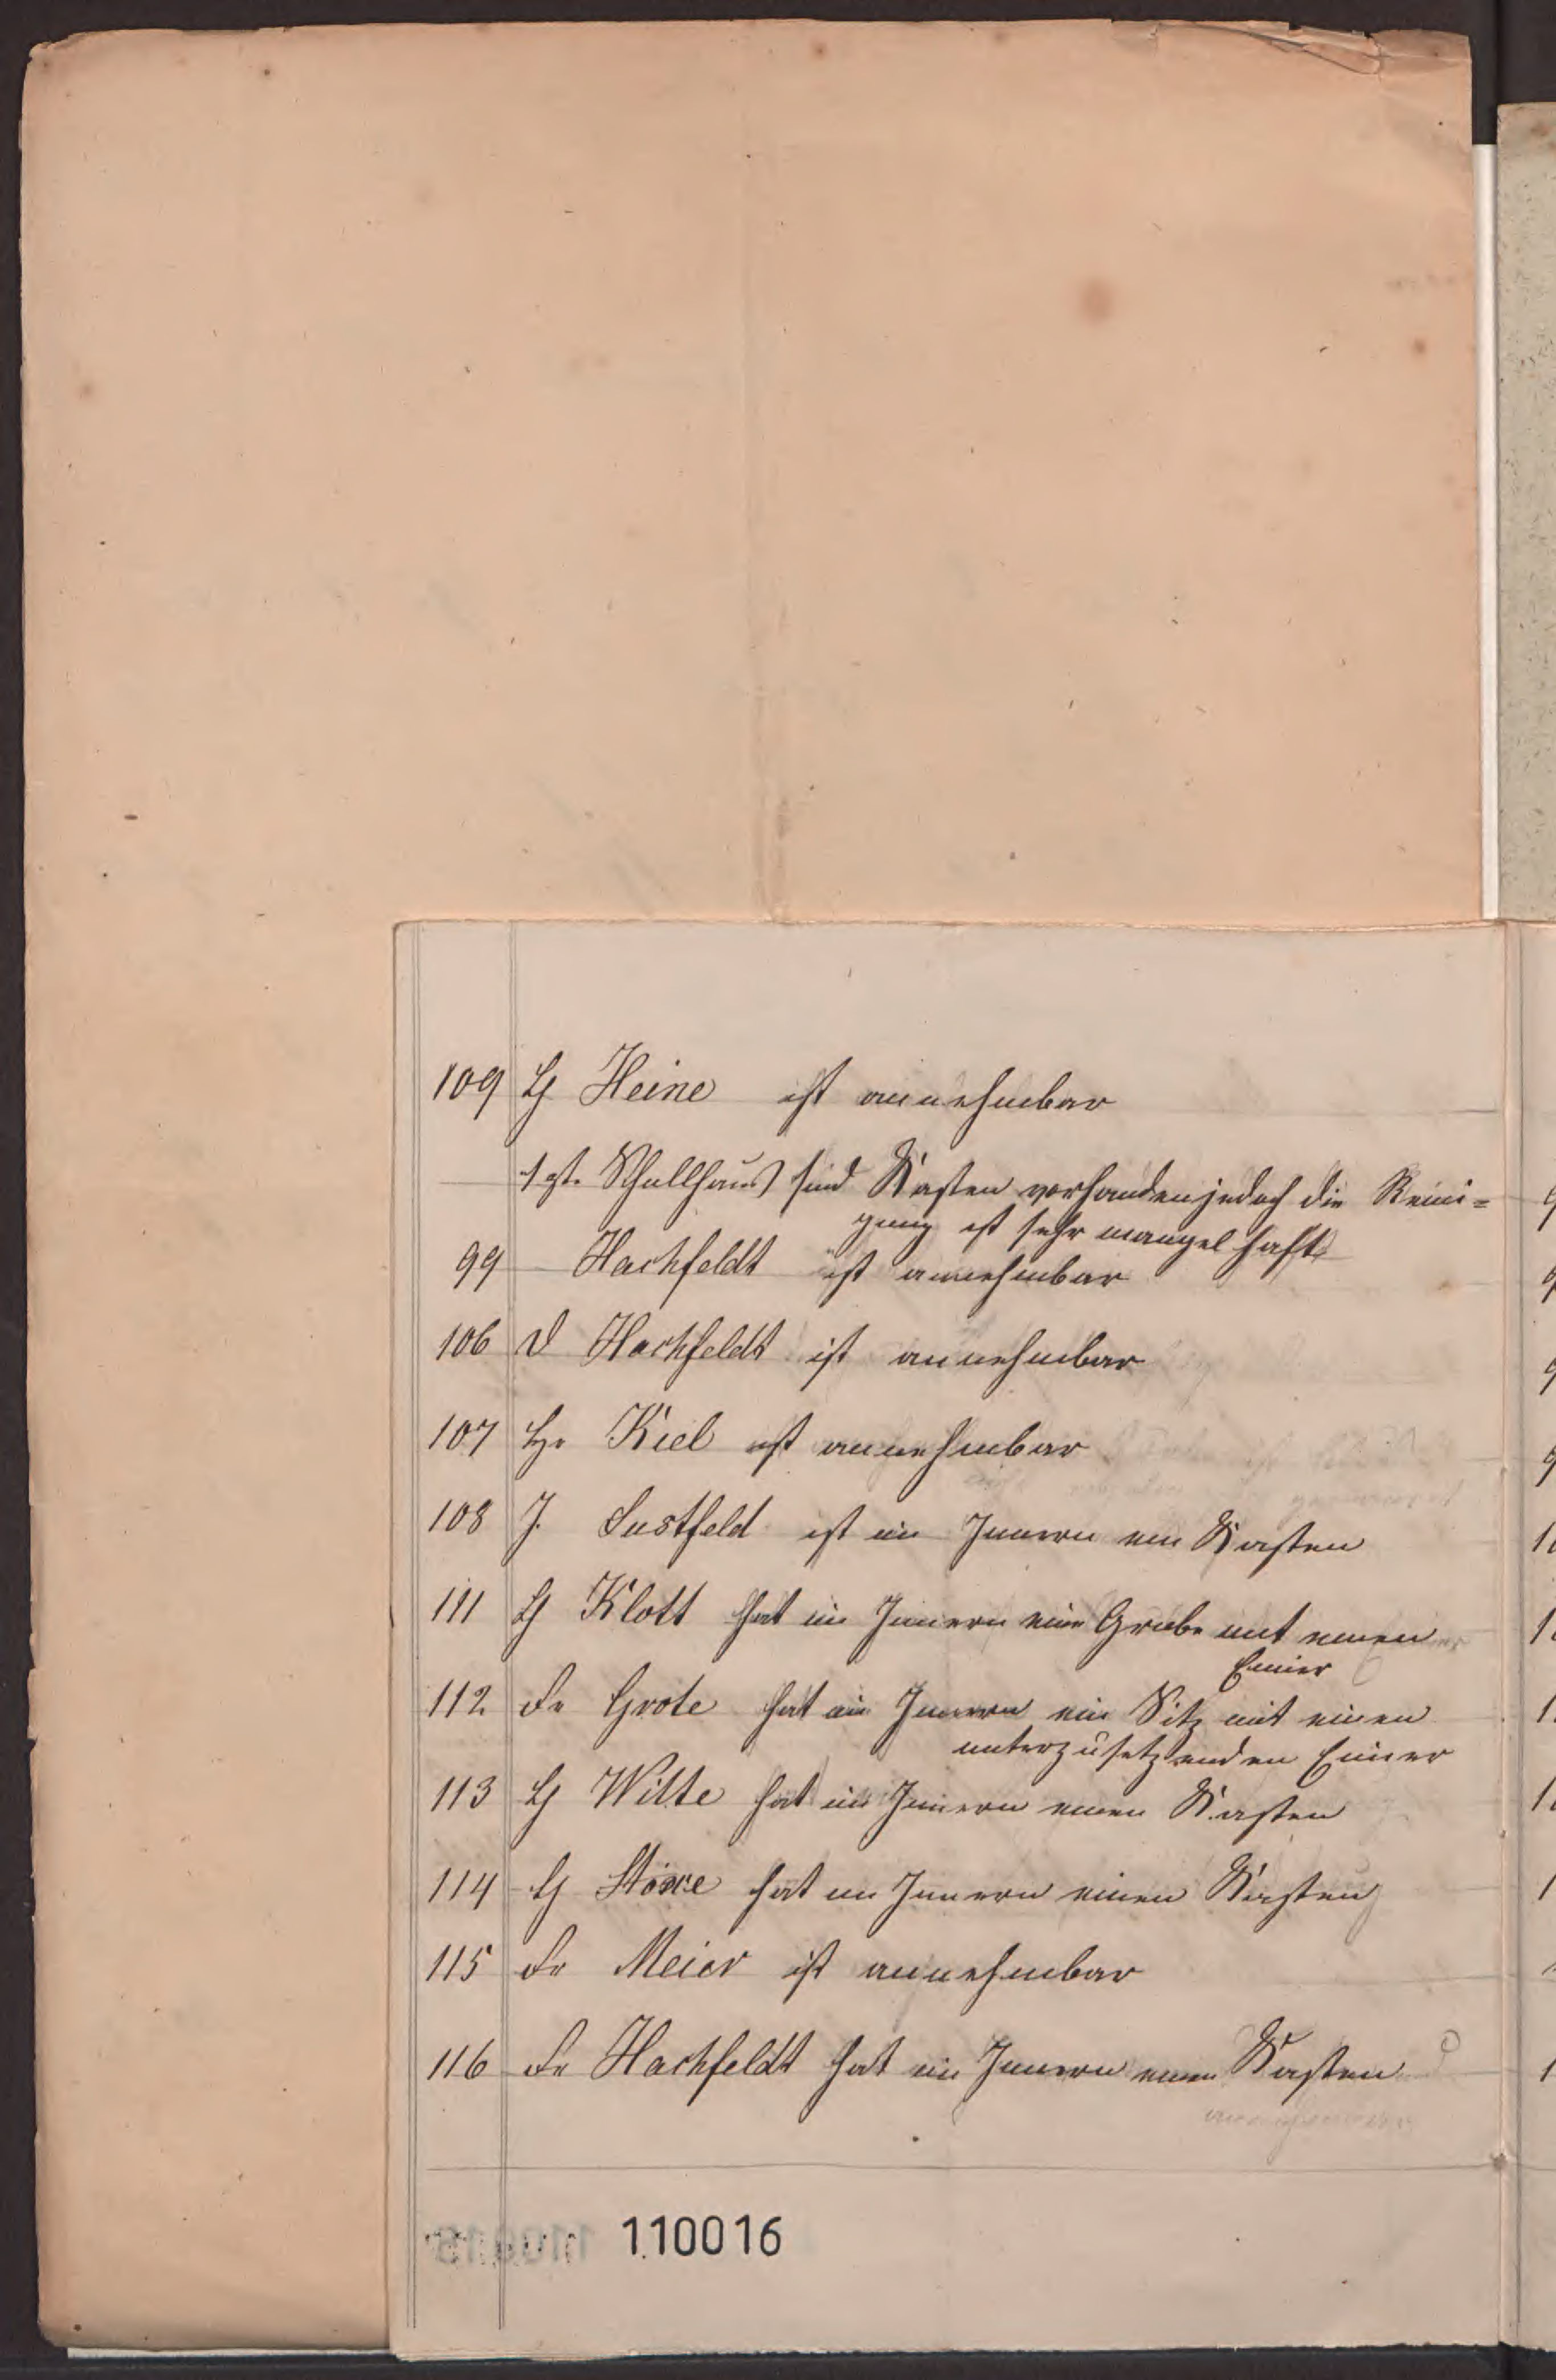 109 H Heine ist annehmbar
Schullhaus sind Kasten vorhanden jedoch die Reini=
gung ist sehr mangelhaft
99 Hachfeldt ist annehmbar
106 D Hachfeldt ist annehmbar
107 Hr Kiel ist annehmbar
108 J. Sustfeld ist im Innern ein Kasten
111 H Klott hat im Innern eine Grube mit einen
Eimer
112 Fr Grote hat im Innern ein Sitz mit einen
unterzusetzenden Eimer
113 H Witte hat im Innern einen Kasten
114 H hat im Innern einen Kasten
115 Fr Meier ist annehmbar
116 Fr Hachfeldt hat im Innern einen Kasten
110016